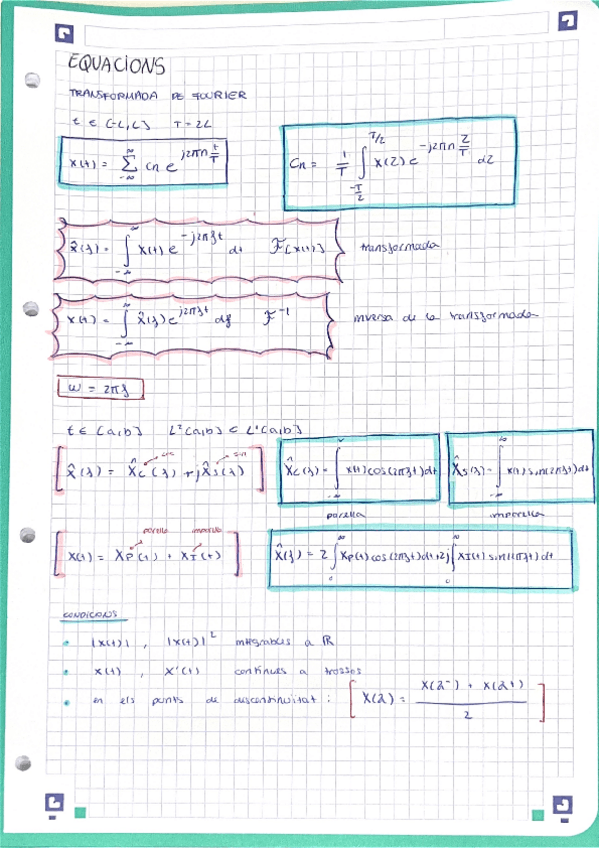 EQUACIONS
TRANSFORMADA DE FOURIER
t ∈ [-L, L] T = 2L
x(t) = ∑_{-∞}^{∞} cn e^{j2πn t/T}
Cn = 1/T ∫_{-T/2}^{T/2} x(z) e^{-j2πn z/T} dz
x̂(f) = ∫_{-∞}^{∞} x(t) e^{-j2πft} dt ℱ[x(t)] transformada
x(t) = ∫_{-∞}^{∞} x̂(f) e^{j2πft} df ℱ^{-1} inversa de la transformada
ω = 2πf
t ∈ [a,b] L²[a,b] ⊂ L¹[a,b]
cos sin
x̂(f) = x̂c(f) + j x̂s(f)
x̂c(f) = ∫_{-∞}^{∞} x(t) cos(2πft) dt
x̂s(f) = ∫_{-∞}^{∞} x(t) sin(2πft) dt
parella imparella
parella imparella
x(t) = xP(t) + xI(t)
x̂(f) = 2 ∫_{0}^{∞} xP(t) cos(2πft) dt + 2j ∫_{0}^{∞} xI(t) sin(2πft) dt
CONDICIONS
• |x(t)| , |x(t)|² integrables a ℝ
• x(t) , x'(t) contínues a trossos
• en els punts de discontinuïtat : [ x(a) = (x(a⁻) + x(a⁺)) / 2 ]